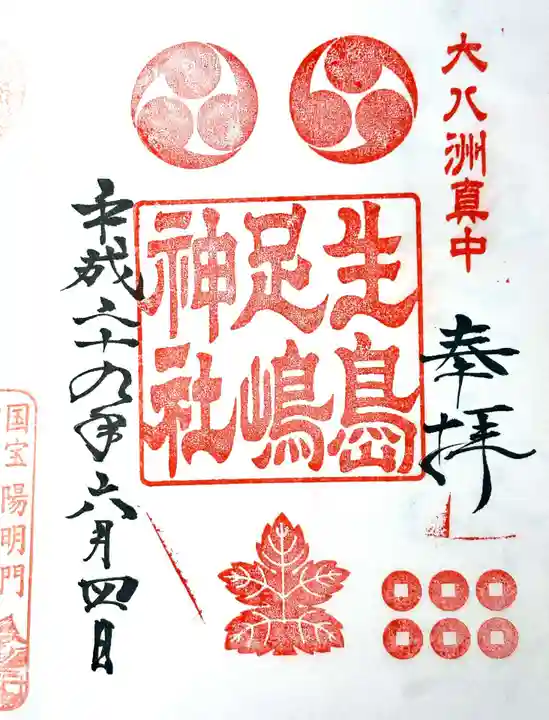 大八洲真中
奉拝
生島
足嶋
神社
平成二十九年六月四日
国宝 陽明門